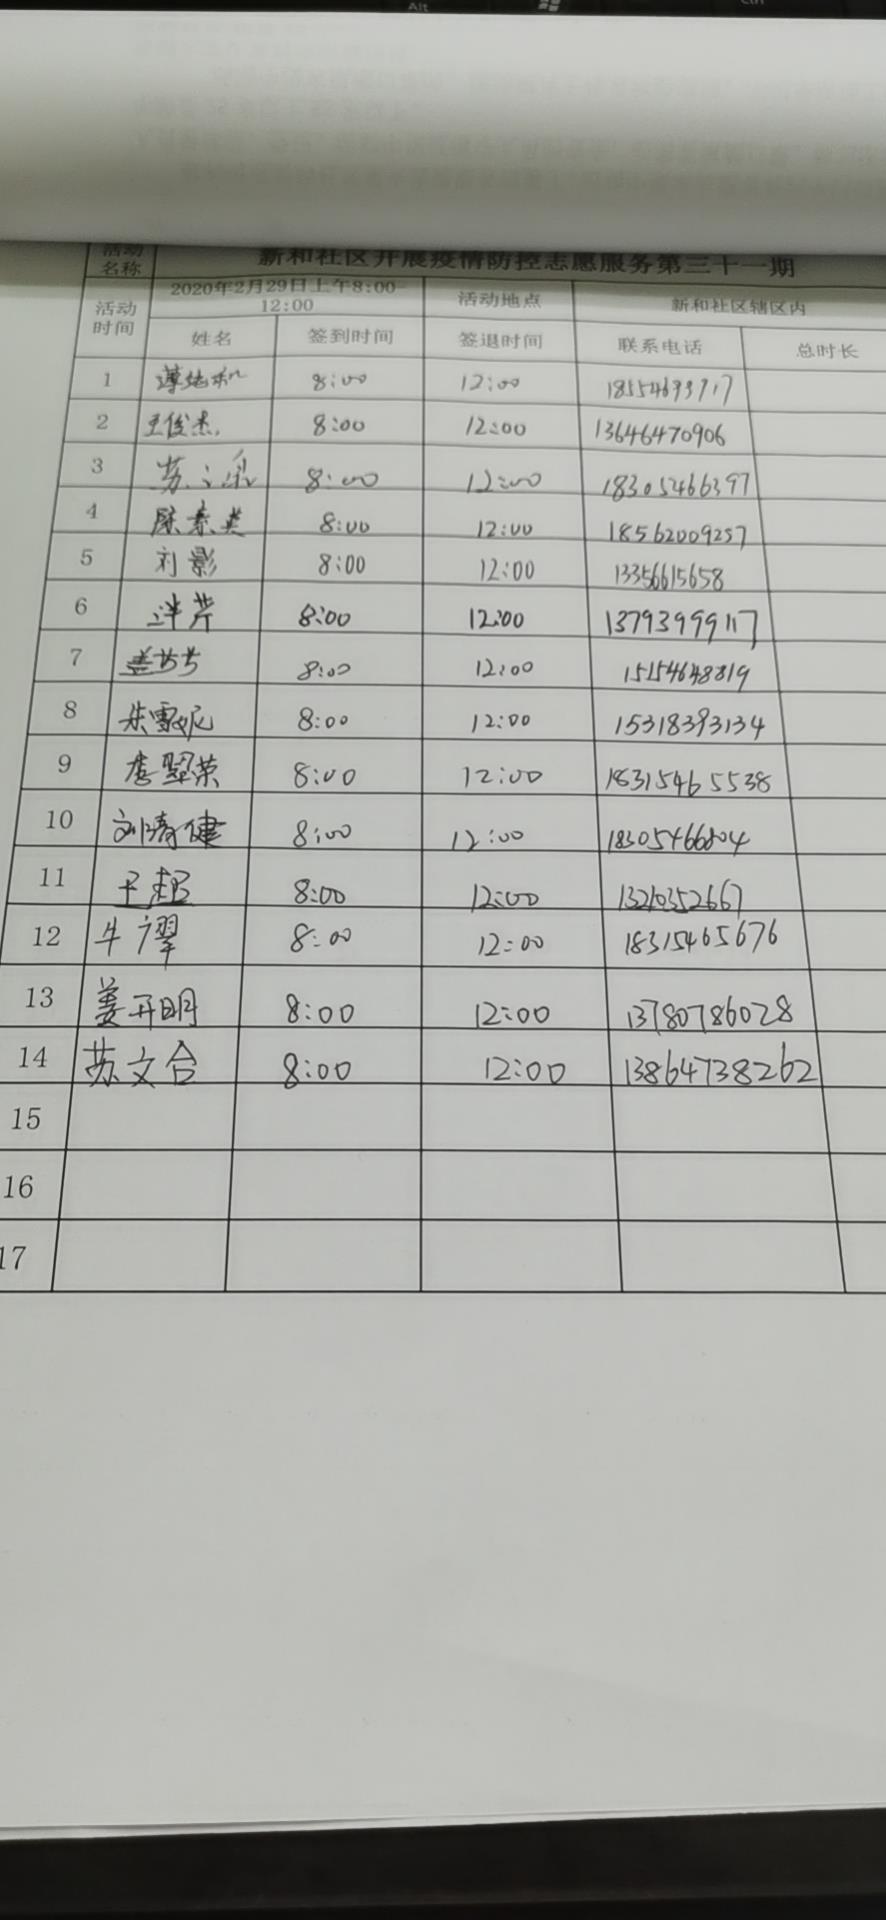 Alt Ctrl
活动名称 新和社区开展疫情防控志愿服务第三十一期
活动时间 2020年2月29日上午8:00-12:00 活动地点 新和社区辖区内
姓名 签到时间 签退时间 联系电话 总时长
1 8:00 12:00
2 王俊杰 8:00 12:00 13646470906
3 苏 8:00 12:00 18305466397
4 陈素英 8:00 12:00 18562009257
5 刘影 8:00 12:00 13356615658
6 8:00 12:00 13793999117
7 盖芳芳 8:00 12:00 15154648819
8 朱雪妮 8:00 12:00 15318393134
9 李翠荣 8:00 12:00 18315465538
10 刘清健 8:00 12:00 18305466804
11 王超 8:00 12:00 13210352667
12 牛 8:00 12:00 18315465676
13 姜开明 8:00 12:00 13780786028
14 苏文合 8:00 12:00 13864738262
15
16
17